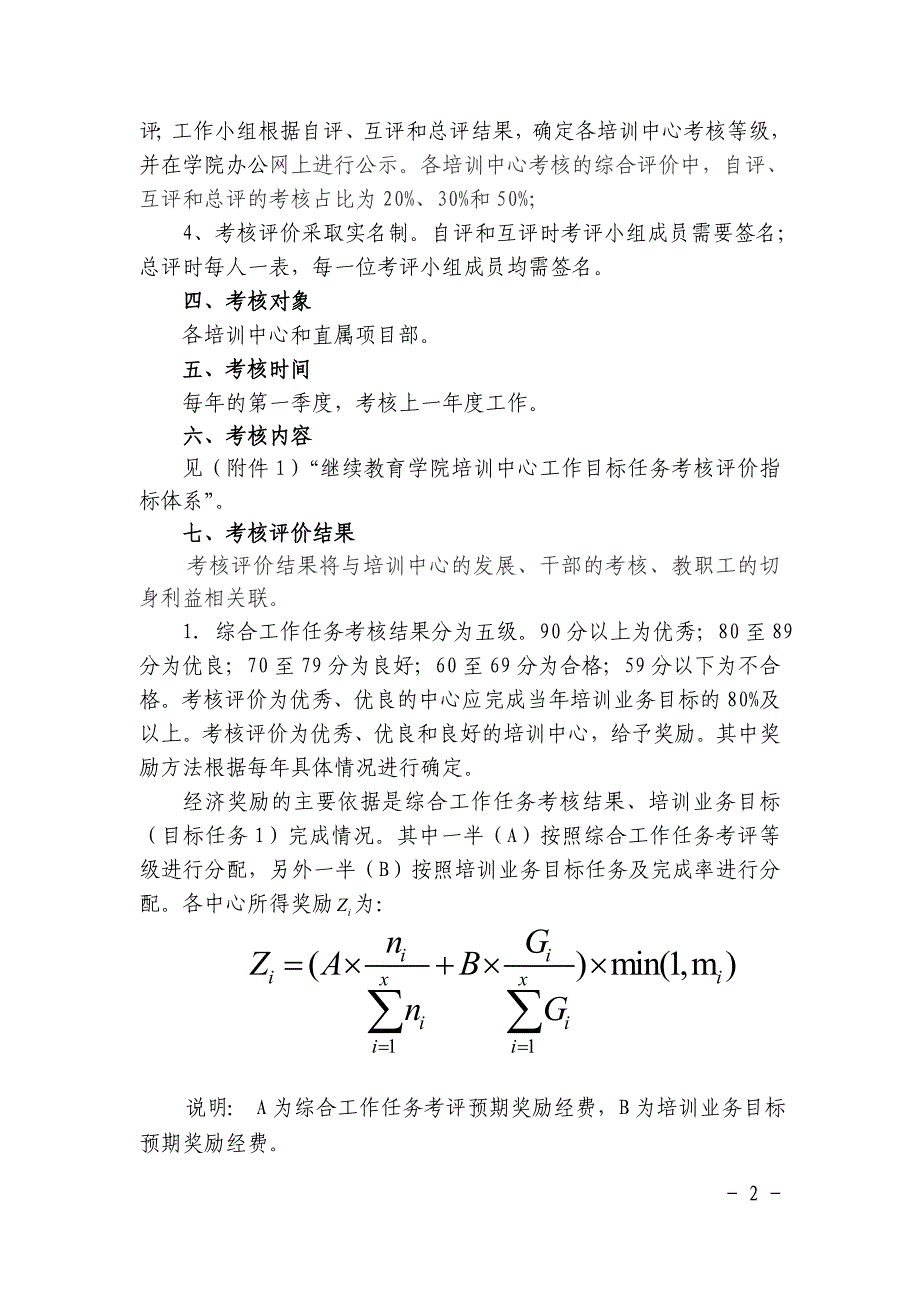 评；工作小组根据自评、互评和总评结果，确定各培训中心考核等级，
并在学院办公网上进行公示。各培训中心考核的综合评价中，自评、
互评和总评的考核占比为20%、30%和50%;
4、考核评价采取实名制。自评和互评时考评小组成员需要签名；
总评时每人一表，每一位考评小组成员均需签名。
四、考核对象
各培训中心和直属项目部。
五、考核时间
每年的第一季度，考核上一年度工作。
六、考核内容
见（附件1）“继续教育学院培训中心工作目标任务考核评价指
标体系”。
七、考核评价结果
考核评价结果将与培训中心的发展、干部的考核、教职工的切
身利益相关联。
1. 综合工作任务考核结果分为五级。90分以上为优秀；80至89
分为优良；70至79分为良好；60至69分为合格；59分以下为不合
格。考核评价为优秀、优良的中心应完成当年培训业务目标的80%及
以上。考核评价为优秀、优良和良好的培训中心，给予奖励。其中奖
励方法根据每年具体情况进行确定。
经济奖励的主要依据是综合工作任务考核结果、培训业务目标
（目标任务1）完成情况。其中一半（A）按照综合工作任务考评等
级进行分配，另外一半（B）按照培训业务目标任务及完成率进行分
配。各中心所得奖励Z_i为：
Z_i=(A×\frac{n_i}{\sum_{i=1}^{x}n_i}+B×\frac{G_i}{\sum_{i=1}^{x}G_i})×min(1,m_i)
说明： A为综合工作任务考评预期奖励经费，B为培训业务目标
预期奖励经费。
－ 2 －